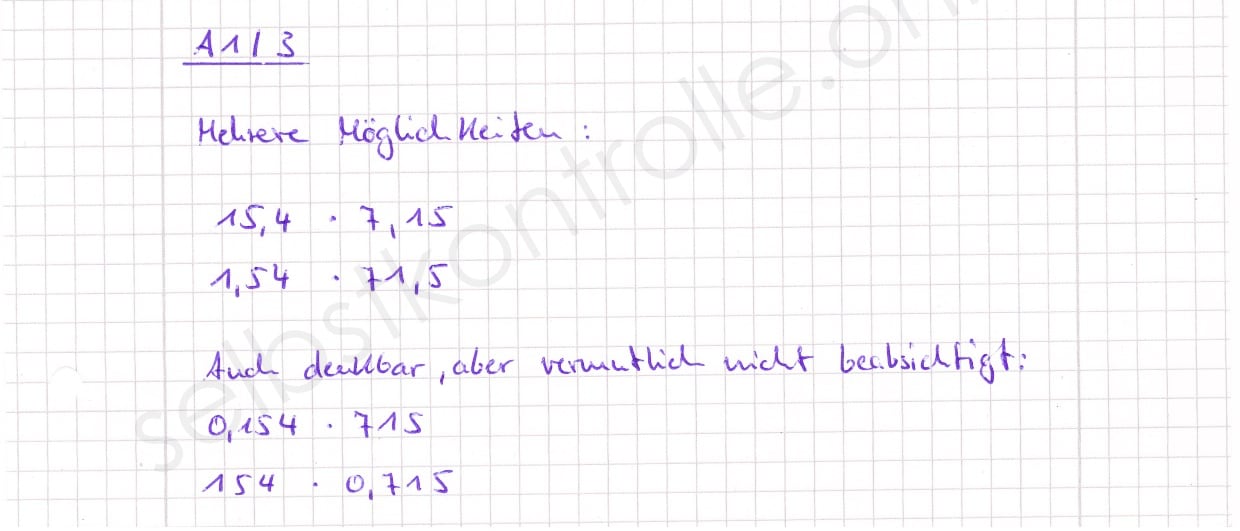 A1/3
Mehrere Möglichkeiten:
15,4 · 7,15
1,54 · 71,5
Auch denkbar, aber vermutlich nicht beabsichtigt:
0,154 · 715
154 · 0,715
selbstkontrolle.on